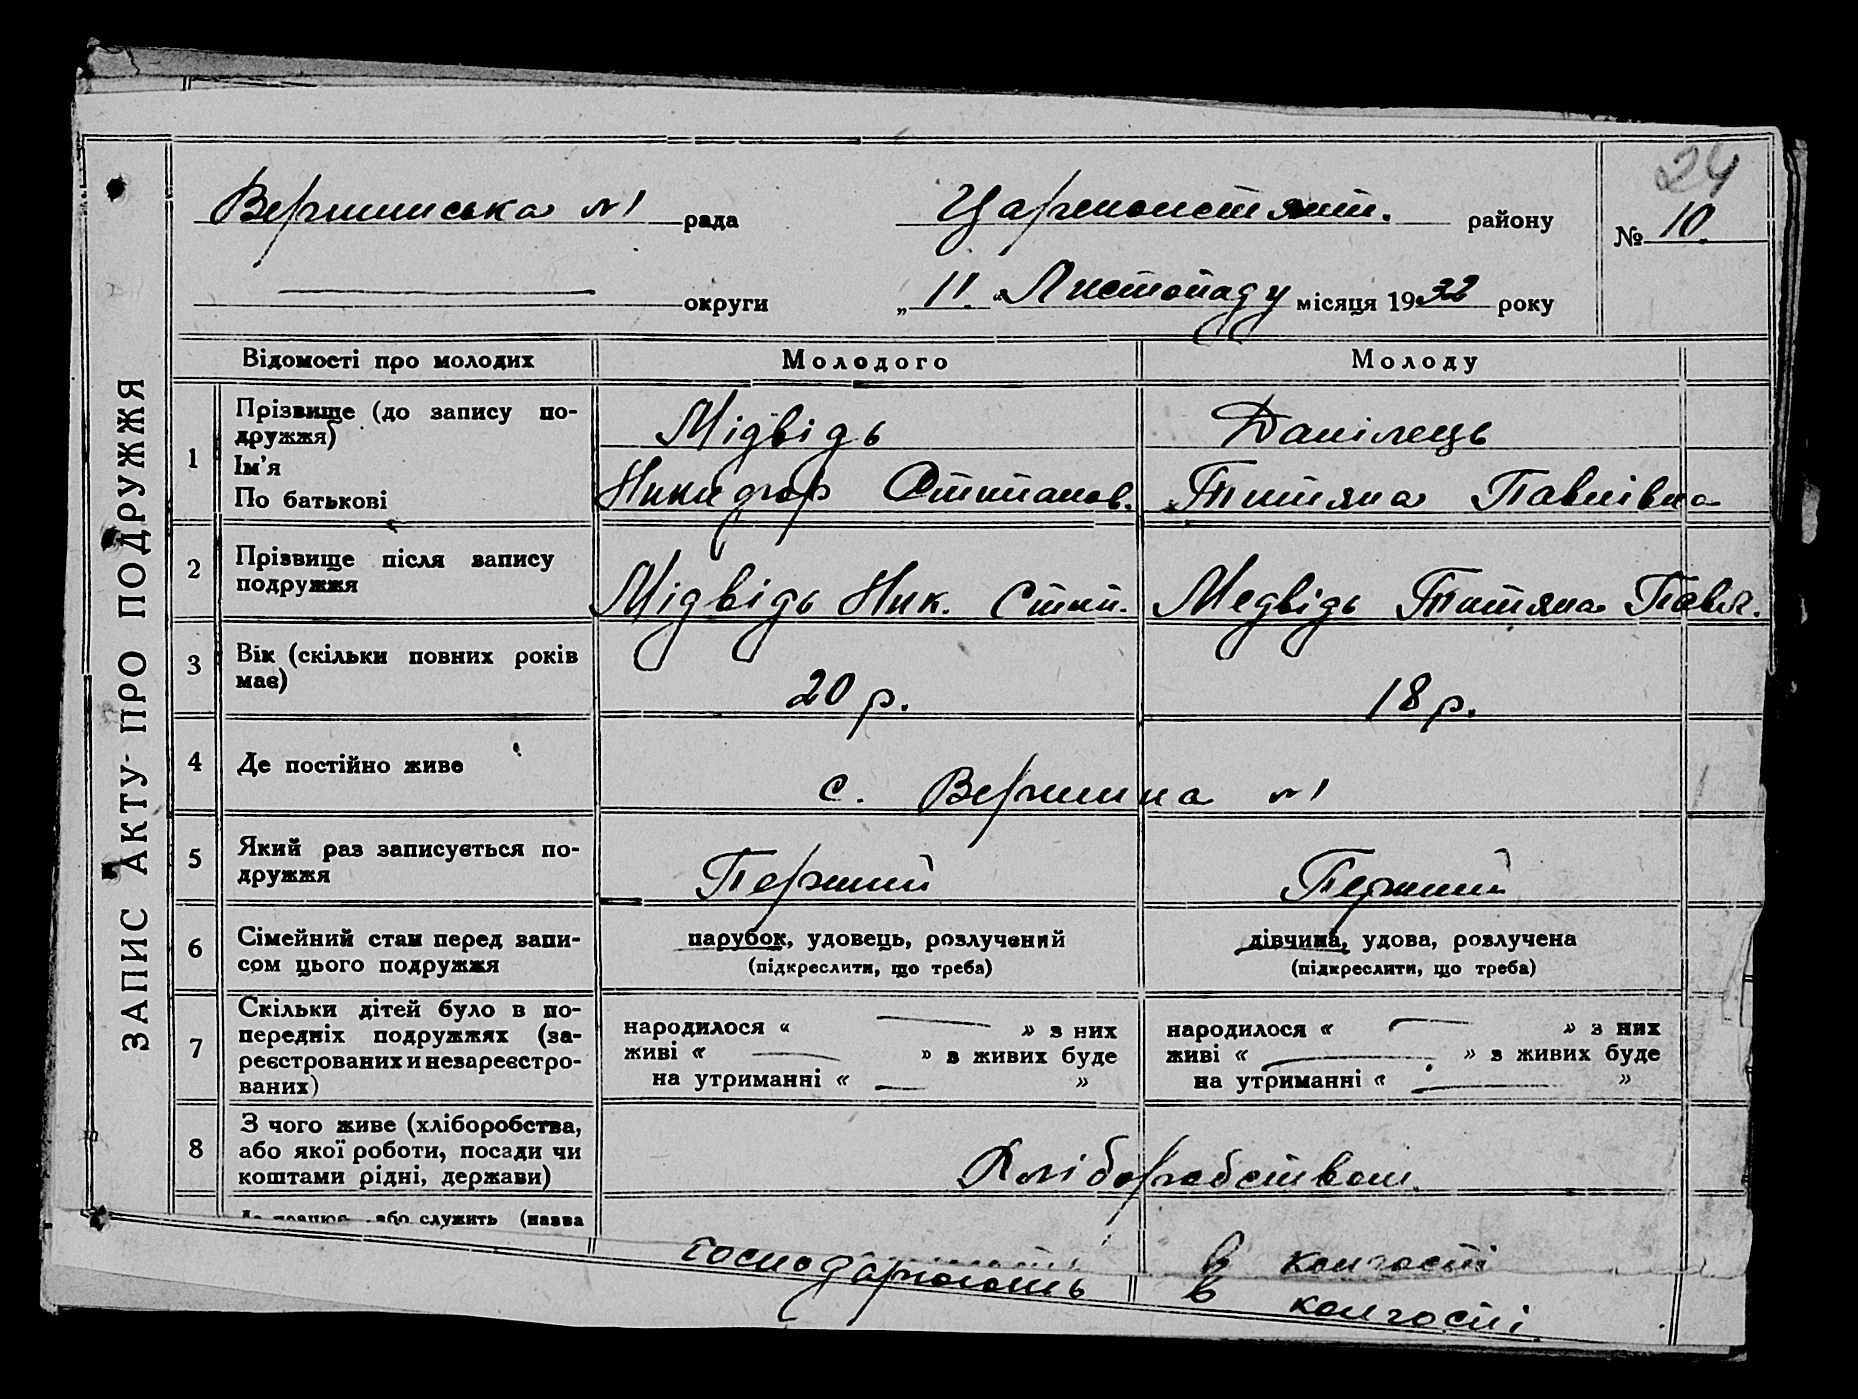 ЗАПИС АКТУ ПРО ПОДРУЖЖЯ
24
Вершинська №1 рада
района Царичанськ. району
№ 10.
округи
„ 11 “ Листопаду місяця 1932 року
Відомості про молодих Молодого Молоду
1 Прізвище (до запису по-
дружжя)
Ім'я
По батькові
Мідвідь Данілець
Никифор Степанов. Титяна Павлівна
2 Прізвище після запису
подружжя
Мідвідь Ник. Степ. Медвідь Титяна Павл.
3 Вік (скільки повних років
має)
20 р. 18 р.
4 Де постійно живе
с. Вершина №1
5 Який раз записується по-
дружжя
Перший Перший
6 Сімейний стан перед запи-
сом цього подружжя
парубок, удовець, розлучений
(підкреслити, що треба)
дівчина, удова, розлучена
(підкреслити, що треба)
7 Скільки дітей було в по-
передніх подружжях (за-
реєстрованих и незареєстро-
ваних)
народилося « » з них
живі « » з живих буде
на утриманні « »
народилося « » з них
живі « » з живих буде
на утриманні « »
8 З чого живе (хліборобства,
або якої роботи, посади чи
коштами рідні, держави)
Хліборобством
або служить (назва
в колгості
господарюють в колгості.